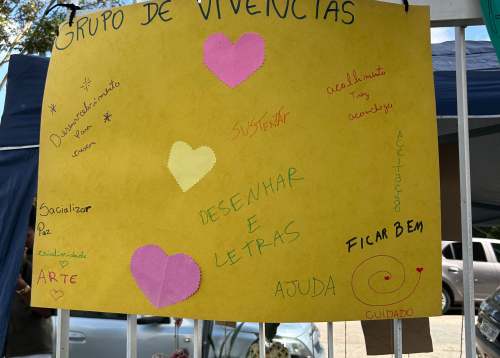 GRUPO DE VIVENCIAS
Desenvolvimento
Para
acolhimento
Traz
aconchego
SUSTENTAR
ACEITAÇÃO
DESENHAR
E
LETRAS
Socializar
Paz
criatividade
ARTE
FICAR BEM
AJUDA
CUIDADO